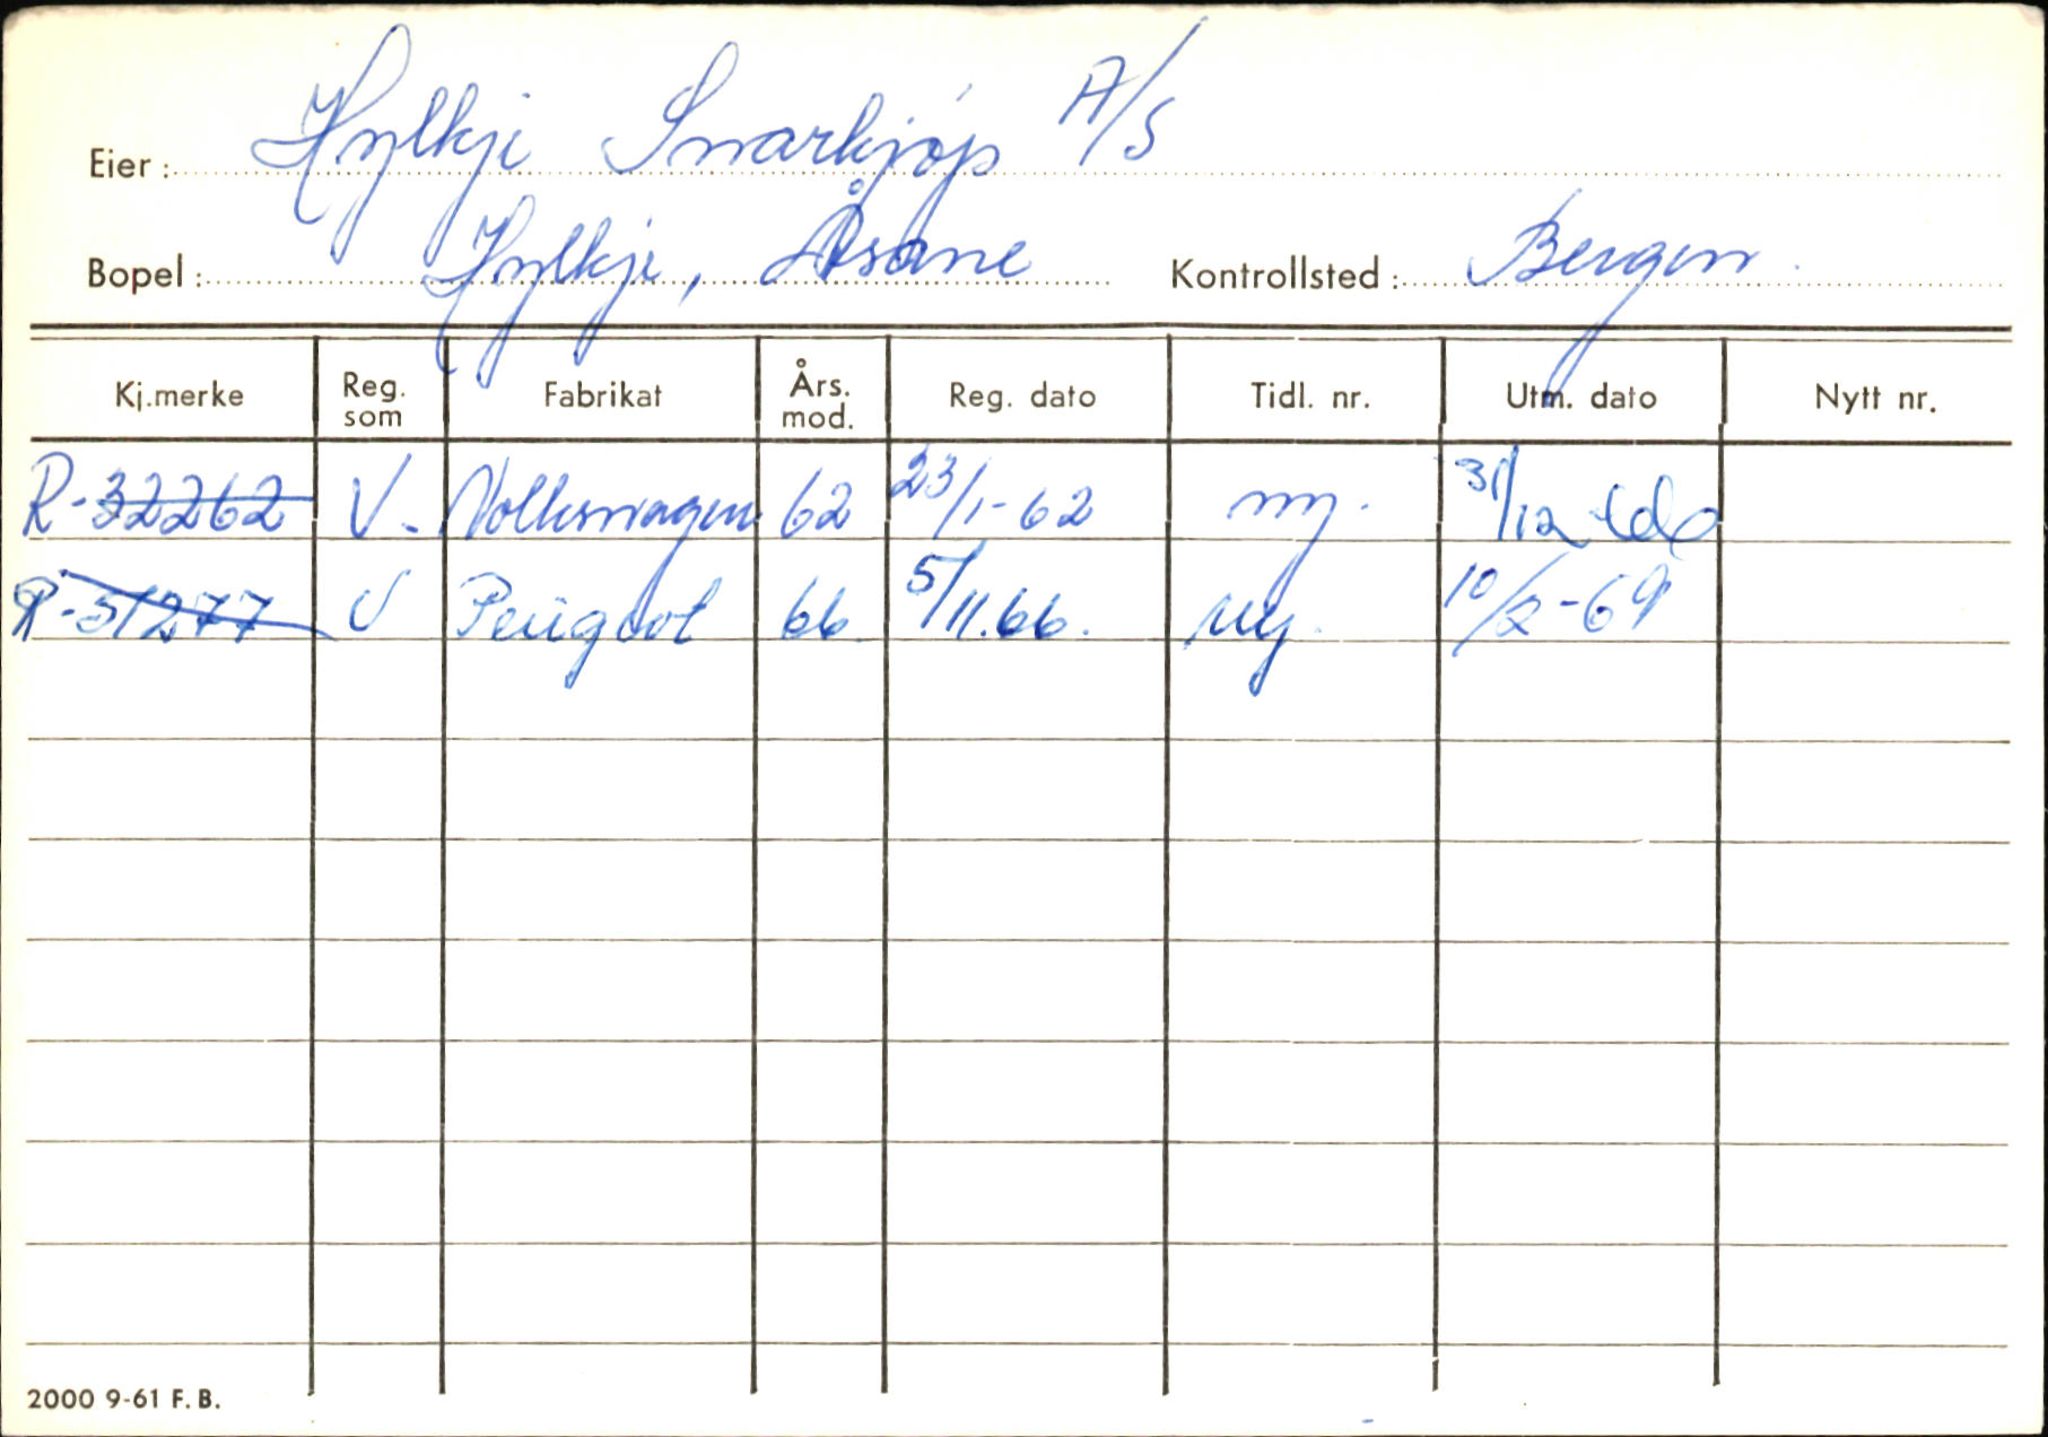 Eier: Hylkje Snarkjøp A/S
Bopel: Hylkje, Åsane Kontrollsted: Bergen.
Kj.merke Reg. som Fabrikat Års. mod. Reg. dato Tidl. nr. Utm. dato Nytt nr.
R-32262 V- Volkswagen 62 23/1-62 ny. 31/12
R-51277 V Peugeot 66 5/11.66. Ny. 10/2-69
2000 9-61 F.B.